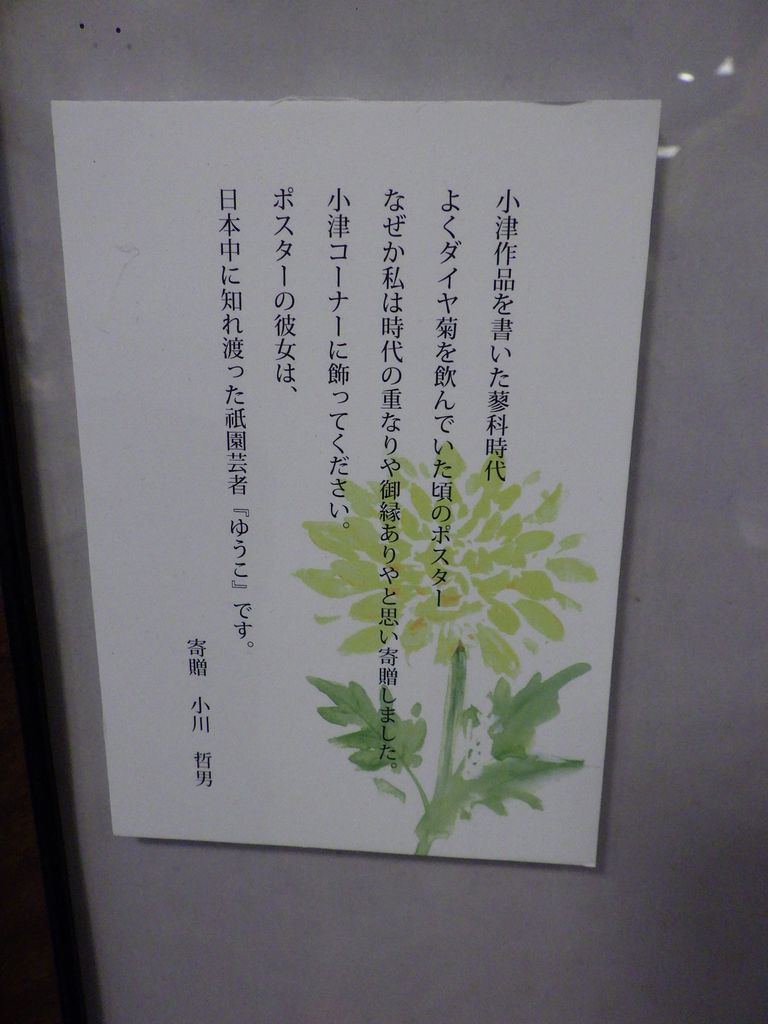 小津作品を書いた蓼科時代
よくダイヤ菊を飲んでいた頃のポスター
なぜか私は時代の重なりや御縁ありやと思い寄贈しました。
小津コーナーに飾ってください。
ポスターの彼女は、
日本中に知れ渡った祇園芸者『ゆうこ』です。
寄贈　小川　哲男